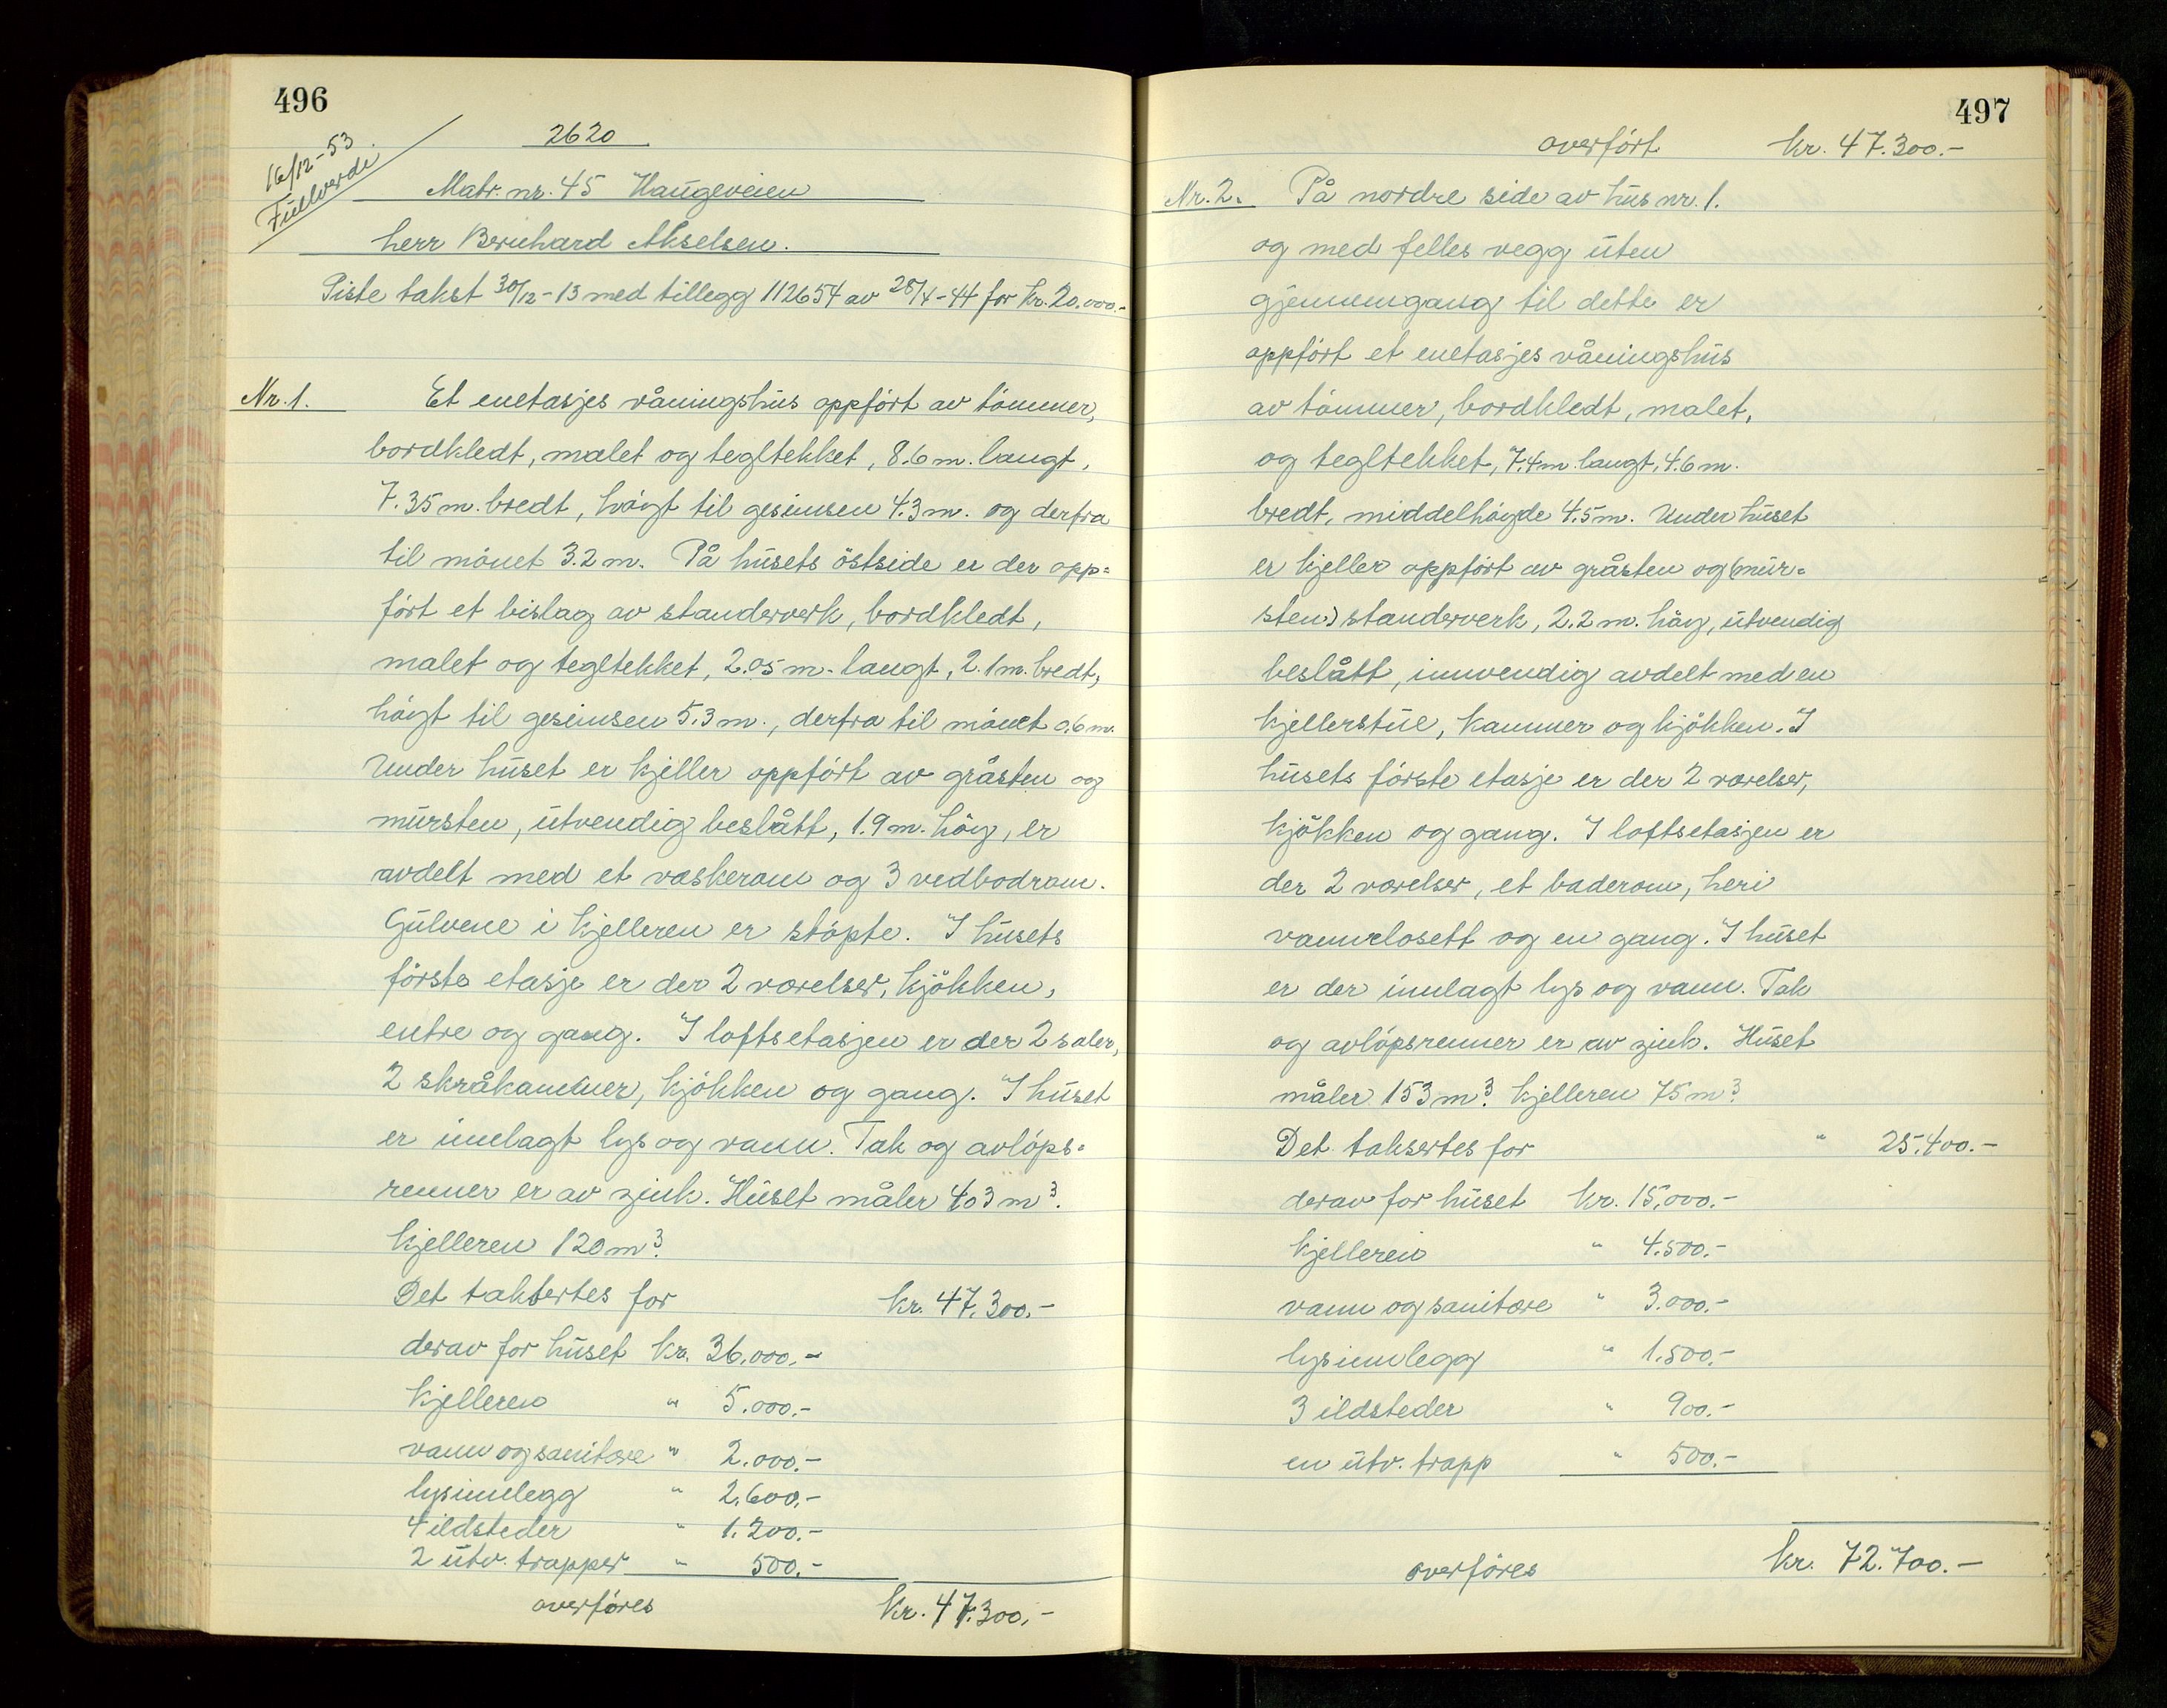 496
2620
16/12-53
Fullverdi
Matr. nr. 45 Haugeveien
herr Bernhard Akselsen.
Siste takst 30/12-13 med tillegg 112654 av 28/4-44 for kr. 20.000.-
Nr. 1. Et enetasjes våningshus oppført av tømmer,
bordkledt, malet og tegltekket, 8.6 m. langt,
7.35 m. bredt, høigt til gesimsen 4.3 m. og derfra
til mønet 3.2 m. På husets østside er der opp=
ført et bislag av standerverk, bordkledt,
malet og tegltekket, 2.05 m. langt, 2.1 m. bredt,
høigt til gesimsen 5.3 m., derfra til mønet 0.6 m.
Under huset er kjeller oppført av gråsten og
mursten, utvendig beslått, 1.9 m. høy, er
avdelt med et vaskerom og 3 vedbodrom.
Gulvene i kjelleren er støpte. I husets
første etasje er der 2 værelser, kjøkken,
entre og gang. I loftsetasjen er der 2 saler,
2 skråkammer, kjøkken og gang. I huset
er innlagt lys og vann. Tak og avløps=
renner er av zink. Huset måler 403 m³.
Kjelleren 120 m³.
Det taksertes for kr. 47.300.-
derav for huset kr. 36.000.-
kjelleren " 5.000.-
vann og sanitære " 2.000.-
lysinnlegg " 2.600.-
4 ildsteder " 1.200.-
2 utv. trapper " 500.-
overføres kr. 47.300.-
497
overført kr. 47.300.-
Nr. 2. På nordre side av hus nr. 1.
og med felles vegg uten
gjennemgang til dette er
oppført et enetasjes våningshus
av tømmer, bordkledt, malet,
og tegltekket, 7.4 m. langt, 4.6 m.
bredt, middelhøyde 4.5 m. Under huset
er kjeller oppført av gråsten og (mur=
sten) standerverk, 2.2 m. høy, utvendig
beslått, innvendig avdelt med en
kjellerstue, kammer og kjøkken. I
husets første etasje er der 2 værelser,
kjøkken og gang. I loftsetasjen er
der 2 værelser, et baderom, heri
vannclosett og en gang. I huset
er der innlagt lys og vann. Tak
og avløpsrenner er av zink. Huset
måler 153 m³. Kjelleren 75 m³.
Det taksertes for " 25.400.-
derav for huset kr. 15.000.-
kjelleren " 4.500.-
vann og sanitære " 3.000.-
lysinnlegg " 1.500.-
3 ildsteder " 900.-
en utv. trapp " 500.-
overføres kr. 72.700.-